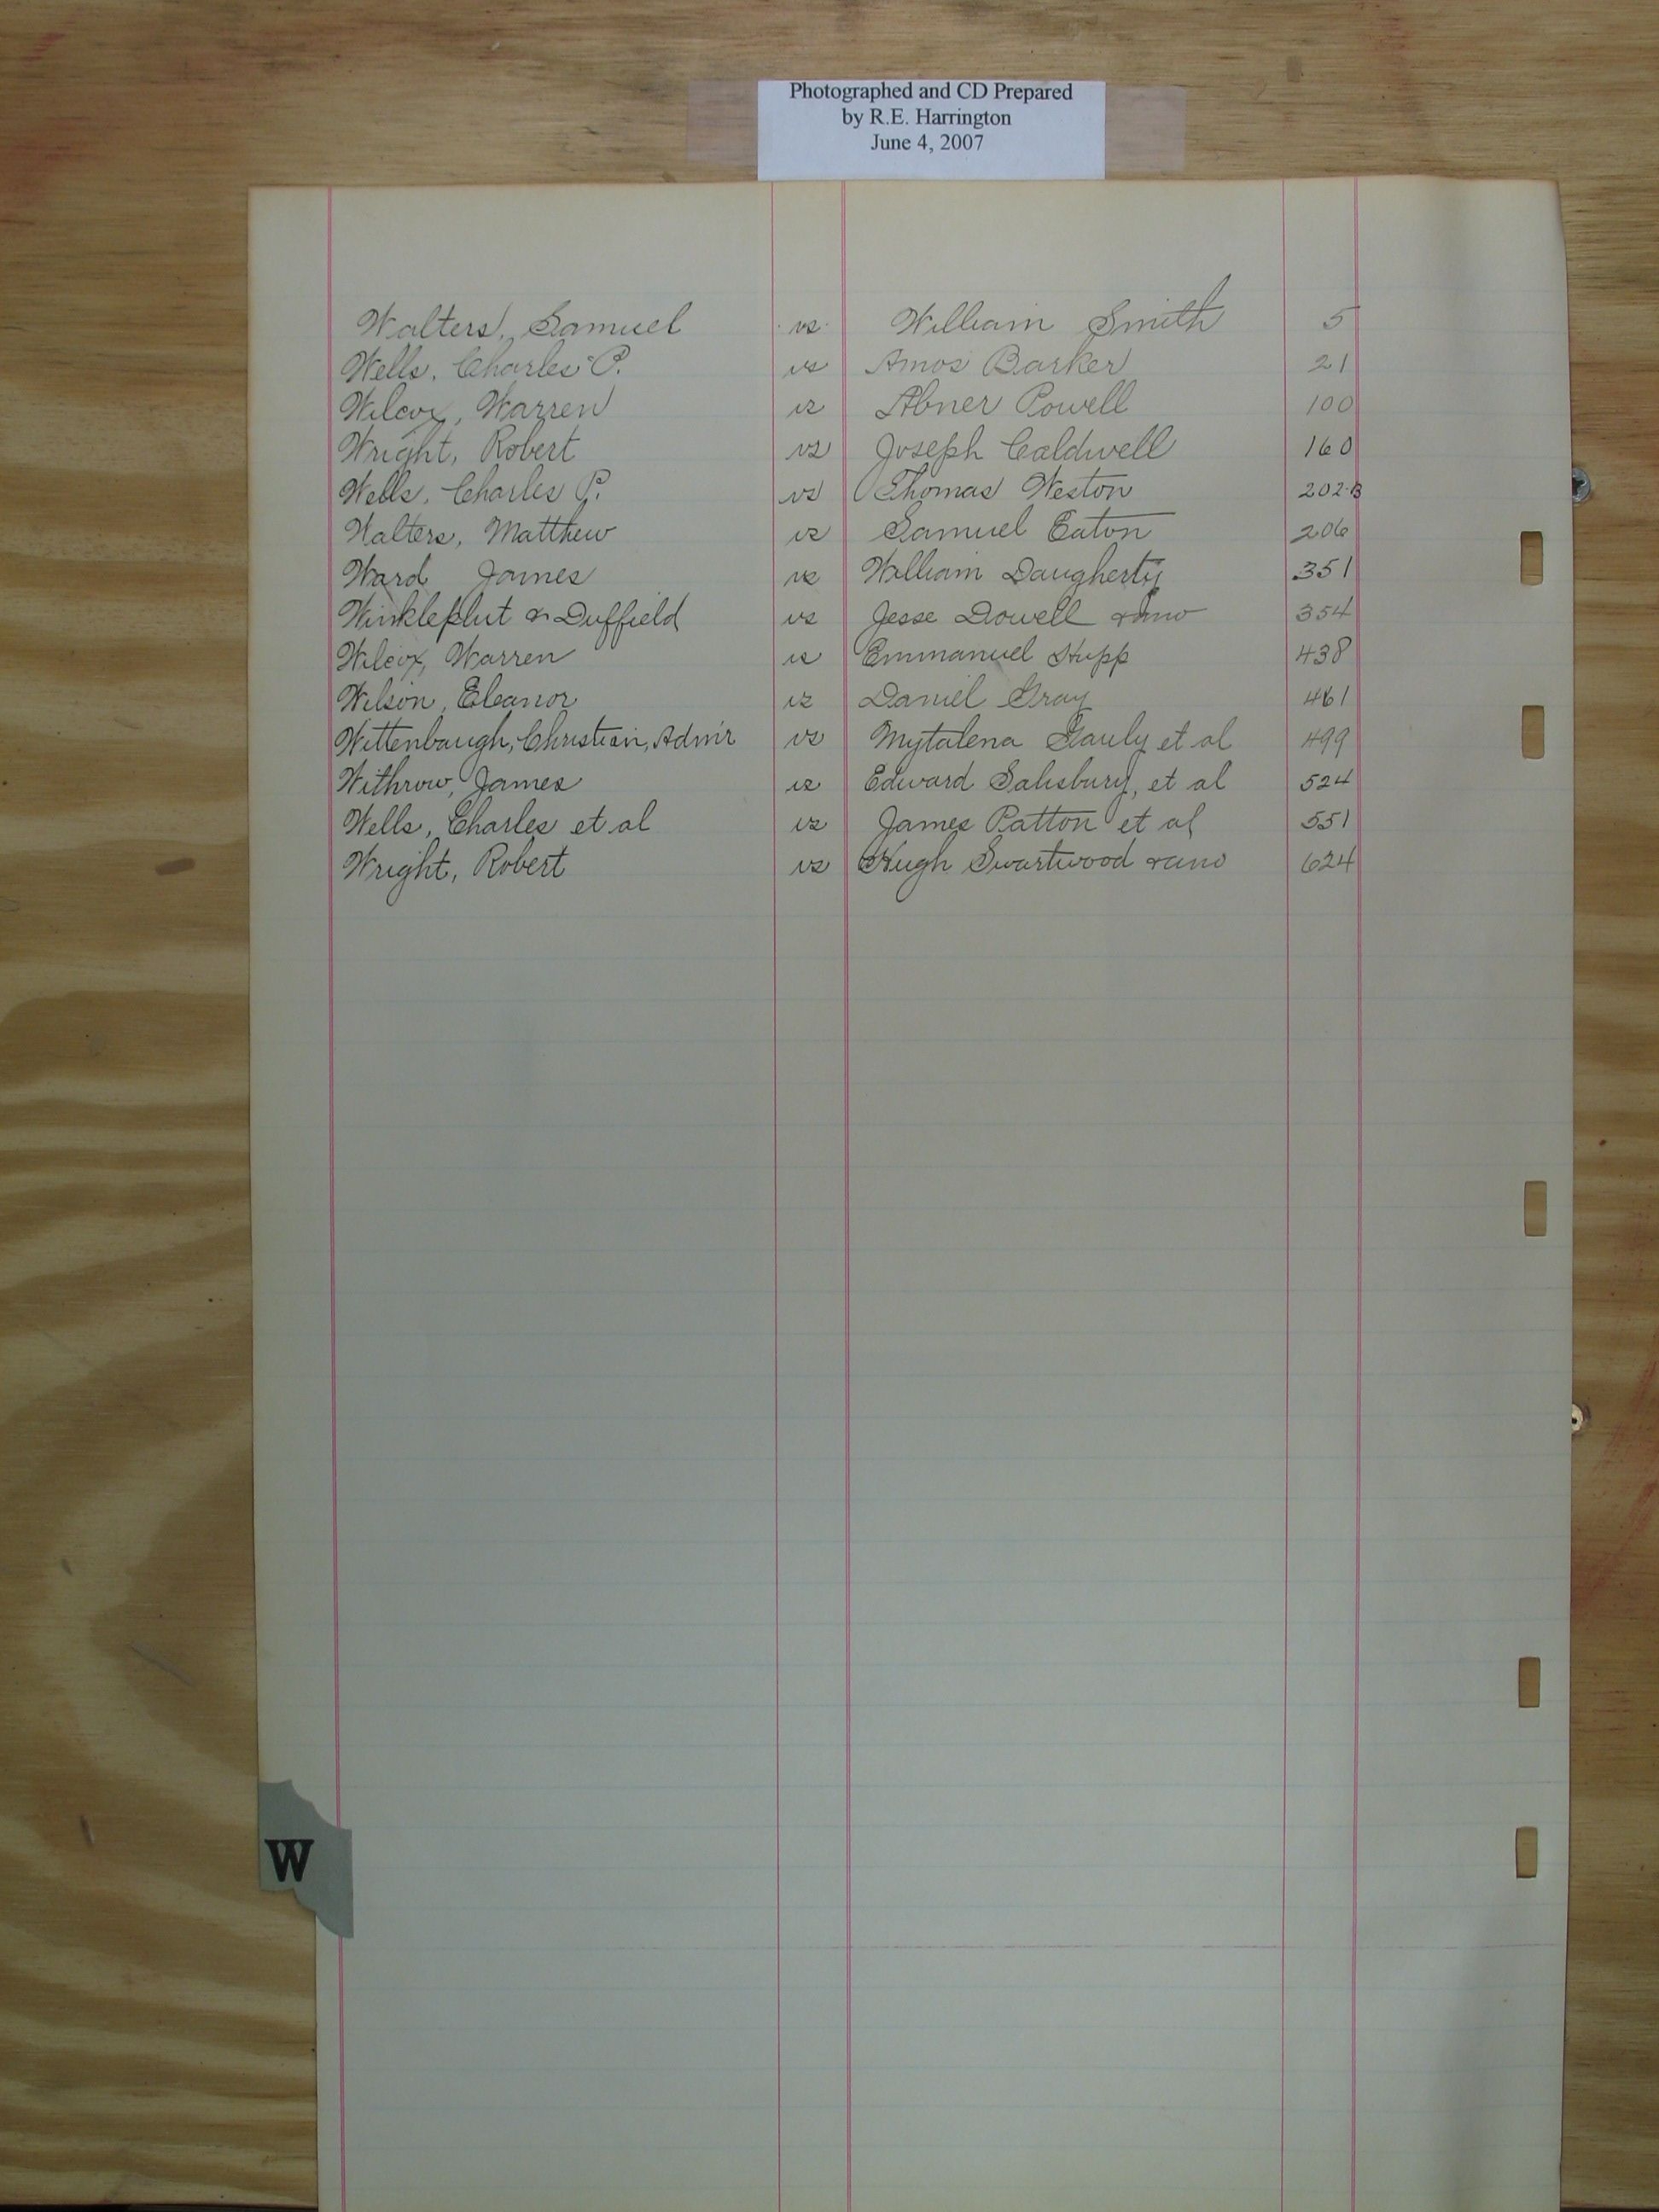 Photographed and CD Prepared
by R.E. Harrington
June 4, 2007
Walters, Samuel vs William Smith 5
Wells, Charles P. vs Amos Barker 21
Wilcox, Warren vs Abner Powell 100
Wright, Robert vs Joseph Caldwell 160
Wells, Charles P. vs Thomas Weston 202-B
Walters, Matthew vs Samuel Eaton 206
Ward James vs William Daugherty 351
Winkleplut & Duffield vs Jesse Dowell & ano 354
Wilcox, Warren vs Emmanuel Hupp 438
Wilson, Eleanor vs Daniel Gray 461
Wittenbaugh, Christian, Adm'r vs Mytalena Gauly et al 499
Withrow, James vs Edward Salisbury, et al 524
Wells, Charles et al vs James Patton et al 551
Wright, Robert vs Hugh Swartwood & ano 624
W